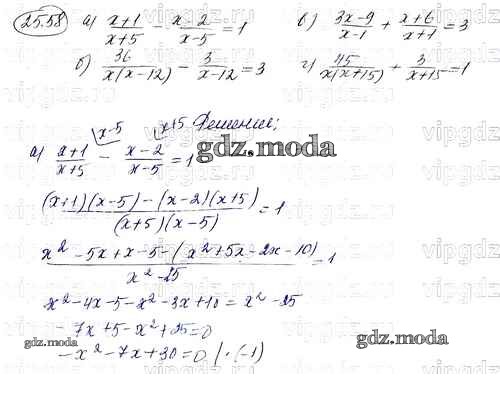 25.58 а) (x+1)/(x+5) - (x-2)/(x-5) = 1 в) (3x-9)/(x-1) + (x+6)/(x+1) = 3
б) 36/(x(x-12)) - 3/(x-12) = 3 г) 45/(x(x+15)) + 3/(x+15) = 1
Решение:
x-5 x+5
а) (x+1)/(x+5) - (x-2)/(x-5) = 1
gdz.moda
((x+1)(x-5) - (x-2)(x+5))/((x+5)(x-5)) = 1
(x² - 5x + x - 5 - (x² + 5x - 2x - 10))/(x² - 25) = 1
x² - 4x - 5 - x² - 3x + 10 = x² - 25
- 7x + 5 - x² + 25 = 0
- x² - 7x + 30 = 0 / · (-1)
gdz.moda
gdz.moda
vipgdz